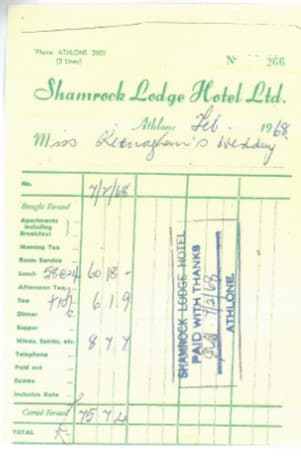 'Phone ATHLONE 2601
(3 Lines)
Nº 266
Shamrock Lodge Hotel Ltd.
Athlone Feb. 1968
Miss Keenaghan's Wedding
No. 7/2/68
Bought Forward
Apartments
including
Breakfast
Morning Tea
Room Service
Lunch 58@21/- 60 18 -
Afternoon Tea
Tea 6. 1. 9
Dinner
Supper
Wines, Spirits, etc. 8 7 7
Telephone
Paid out
Extras
Inclusive Rate
Carried Forward 75 7 4
TOTAL £
SHAMROCK LODGE HOTEL
PAID WITH THANKS
7/2/68
ATHLONE.